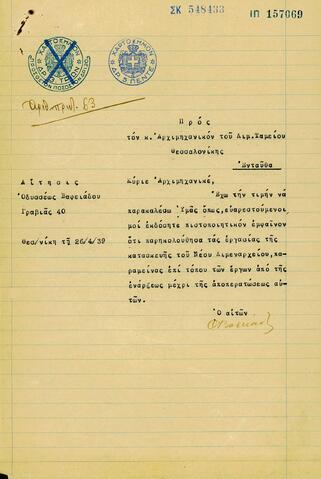 ΣΚ 548433 ΙΠ 157069
ΧΑΡΤΟΣΗΜΟΝ
ΧΑΡΤΟΣΗΜΟΝ
ΔΡ. 5 ΠΕΝΤΕ
Ἀριθ. πρωτ. 63
Πρός
τόν κ. Ἀρχιμηχανικόν τοῦ Λιμ. Ταμείου
Θεσσαλονίκης
Ἐνταῦθα
Αἴτησις
Ὀδυσσέως Σαφειάδου
Γραβιᾶς 40
Θεσ/νίκη τῇ 26/4/39
Κύριε Ἀρχιμηχανικέ,
Ἔχω τήν τιμήν νά
παρακαλέσω Ὑμᾶς ὅπως, εὐαρεστούμενοι
μοί ἐκδόσητε πιστοποιητικόν ἐμφαῖνον
ὅτι παρηκολούθησα τάς ἐργασίας τῆς
κατασκευῆς τοῦ Νέου Λιμεναρχείου, πα-
ραμείνας ἐπί τόπου τῶν ἔργων ἀπό τῆς
ἐνάρξεως μέχρι τῆς ἀποπερατώσεως αὐ-
τῶν.
Ὁ αἰτῶν